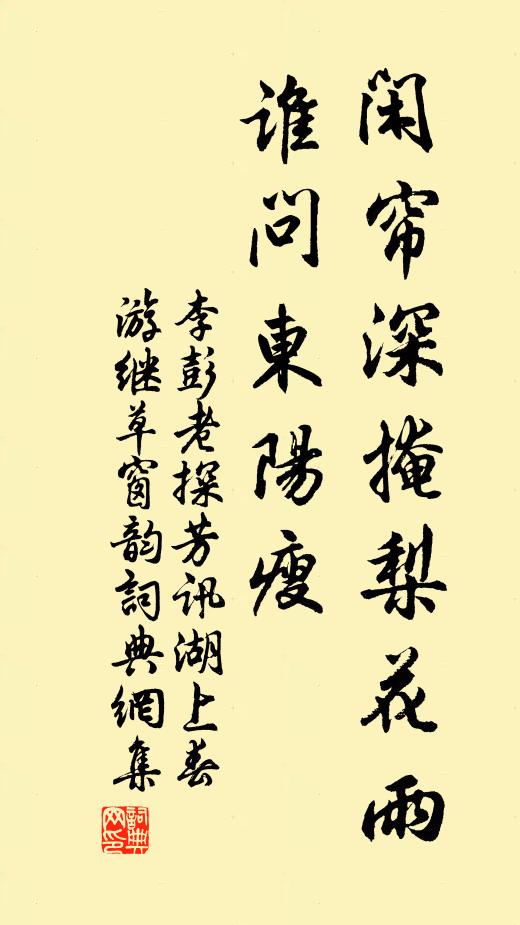 闲帘深掩梨花雨
谁问東陽瘦
李彭老探芳讯湖上春
游继草窗韵詞典網集
詞典网印